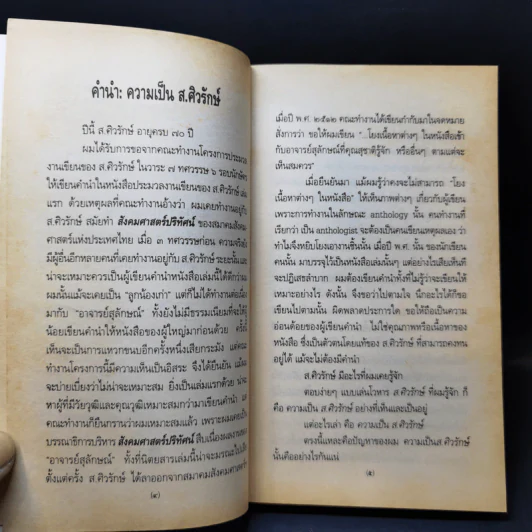 คำนำ: ความเป็น ส.ศิวรักษ์
ปีนี้ ส.ศิวรักษ์ อายุครบ ๗๐ ปี
ผมได้รับการขอจากคณะทำงานโครงการประมวล
งานเขียนของ ส.ศิวรักษ์ ในวาระ ๗ ทศวรรษ ๖ รอบนักษัตร
ให้เขียนคำนำในหนังสือประมวลงานเขียนของ ส.ศิวรักษ์ เล่ม
แรก ด้วยเหตุผลที่คณะทำงานอ้างว่า ผมเคยทำงานอยู่กับ
ส.ศิวรักษ์ สมัยทำ สังคมศาสตร์ปริทัศน์ ของสมาคมสังคม
ศาสตร์แห่งประเทศไทย เมื่อ ๓ ทศวรรษก่อน ความจริงยัง
มีผู้อื่นอีกหลายคนที่เคยทำงานอยู่กับ ส.ศิวรักษ์ ระยะนั้นและ
น่าจะเหมาะควรเป็นผู้เขียนคำนำหนังสือเล่มนี้ได้ดีกว่าผม
ผมนั้นแม้จะเคยเป็น "ลูกน้องเก่า" แต่ก็ไม่ได้ทำงานต่อเนื่อง
มากับ "อาจารย์สุลักษณ์" ทั้งยังไม่มีธรรมเนียมที่จะให้ผู้
น้อยเขียนคำนำให้หนังสือของผู้ใหญ่มาก่อนด้วย ครั้งนี้
เห็นจะเป็นการแหวกขนบอีกครั้งหนึ่งเสียกระมัง แต่คณะ
ทำงานโครงการนี้มีความเห็นเป็นอิสระ จึงได้ยืนยัน แม้ผม
จะบ่ายเบี่ยงว่าไม่น่าจะเหมาะสม ยิ่งเป็นเล่มแรกด้วย น่าจะ
หาผู้ที่มีวัยวุฒิและคุณวุฒิเหมาะสมกว่ามาเขียนคำนำ แต่
คณะทำงานก็ยืนกรานว่าผมเหมาะสมแล้ว เพราะผมเคยเป็น
บรรณาธิการบริหาร สังคมศาสตร์ปริทัศน์ สืบเนื่องผลงานของ
"อาจารย์สุลักษณ์" ทั้งที่นิตยสารเล่มนี้น่าจะมรณะไปแล้ว
ตั้งแต่ครั้ง ส.ศิวรักษ์ ได้ลาออกจากสมาคมสังคมศาสตร์
(๔)
เมื่อปี พ.ศ. ๒๕๑๒ คณะทำงานได้เขียนกำกับมาในจดหมาย
สั่งการว่า ขอให้ผมเขียน "...โยงเนื้อหาต่างๆ ในหนังสือเข้า
กับอาจารย์สุลักษณ์ที่คุณสุชาติรู้จัก หรืออื่นๆ ตามแต่จะ
เห็นสมควร"
เมื่อยืนยันมา แม้ผมรู้ว่าคงจะไม่สามารถ "โยง
เนื้อหาต่างๆ ในหนังสือ" ให้เห็นภาพต่างๆ เกี่ยวกับผู้เขียน
เพราะการทำงานในลักษณะ anthology นั้น คนทำงานที่
เรียกว่า เป็น anthologist จะต้องเป็นคนเขียนเหตุผลเอง ว่า
ทำไมจึงหยิบโยงเอางานชิ้นนั้น เมื่อปี พ.ศ. นั้น ของนักเขียน
คนนั้น มาบรรจุไว้เป็นหนังสือเล่มนั้นๆ แต่อย่างไรเสียเห็นที
จะปฏิเสธลำบาก ผมต้องเขียนคำนำทั้งที่ไม่รู้ว่าจะเขียนให้
เหมาะอย่างไร ดังนั้น จึงขอว่าไปตามใจ นึกอะไรได้ก็ขอ
เขียนไปตามนั้น ผิดพลาดประการใด ขอให้ถือเป็นความ
อ่อนด้อยของผู้เขียนคำนำ ไม่ใช่คุณภาพหรือเนื้อหาของ
หนังสือ ซึ่งเป็นตัวตนโดยแท้ของ ส.ศิวรักษ์ ที่สามารถคงทน
อยู่ได้ แม้จะไม่ต้องมีคำนำ
ส.ศิวรักษ์ มีอะไรที่ผมเคยรู้จัก
ตอบง่ายๆ แบบเล่นโวหาร ส.ศิวรักษ์ ที่ผมรู้จัก ก็
คือ ความเป็น ส.ศิวรักษ์ อย่างที่เห็นและเป็นอยู่
แต่อะไรเล่า คือ ความเป็น ส.ศิวรักษ์
ตรงนี้แหละคือปัญหาของผม ความเป็นส.ศิวรักษ์
นั้นคืออย่างไรกันแน่
(๕)